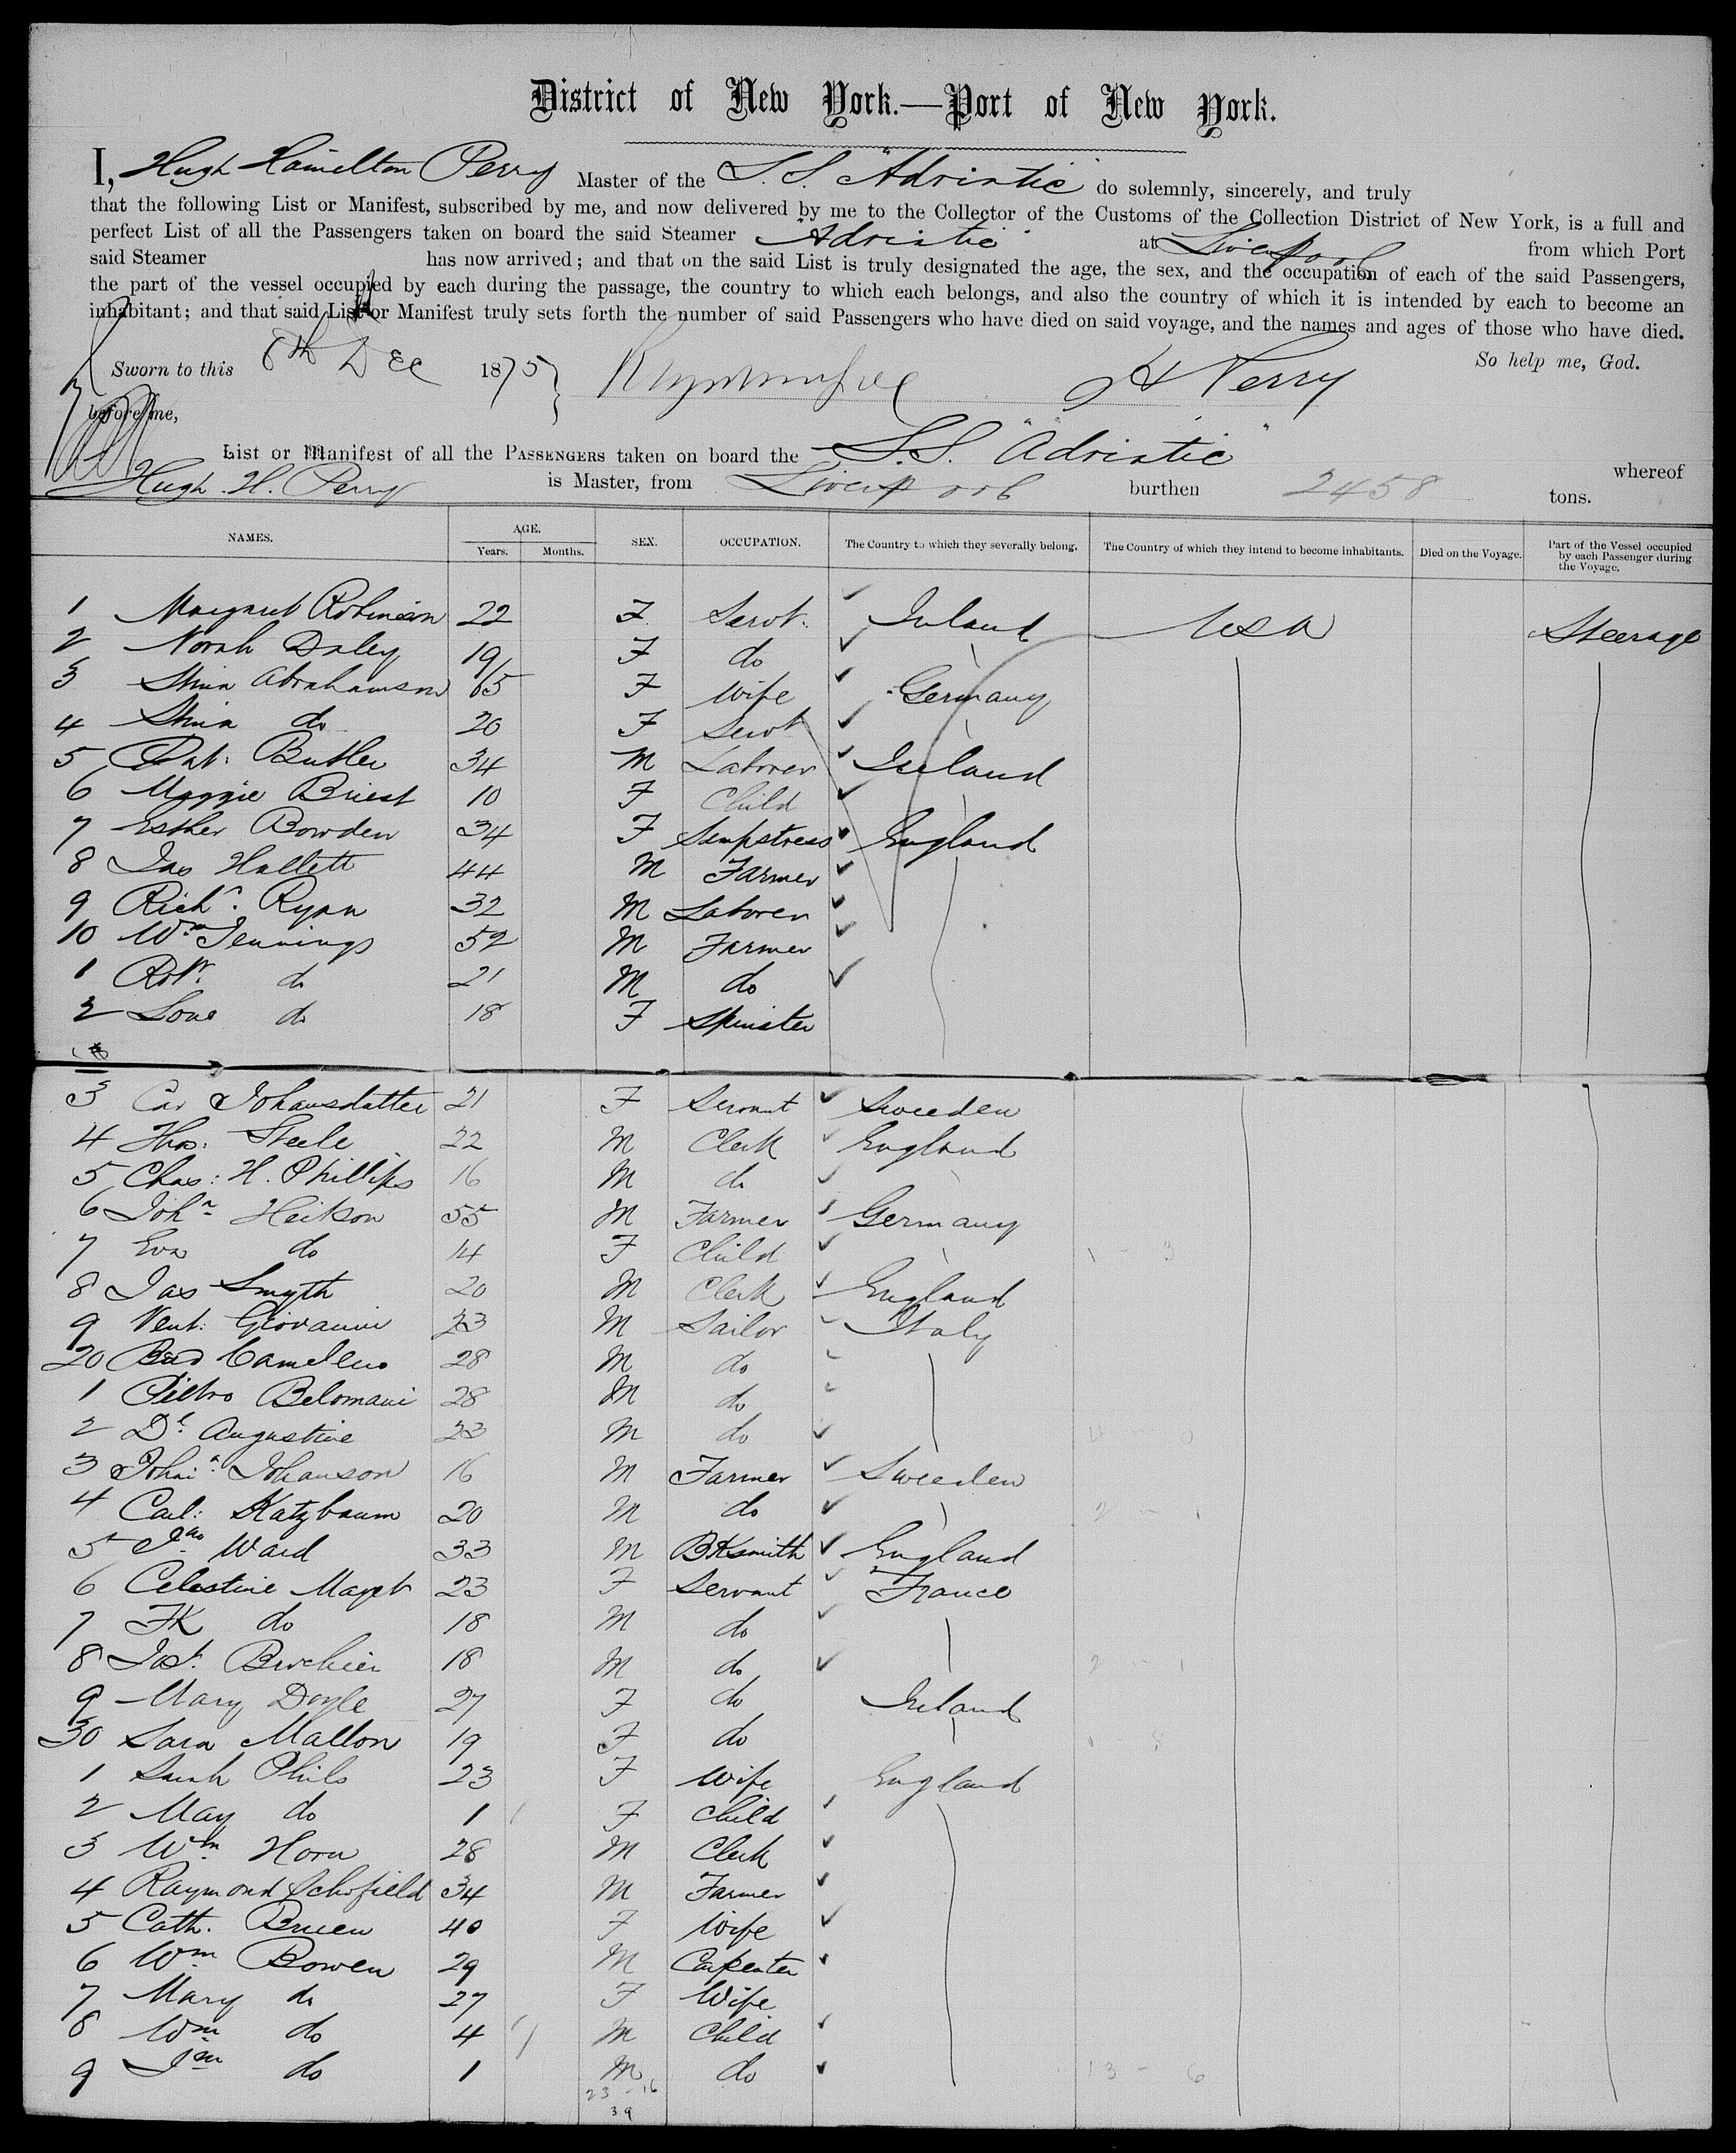 District of New York.—Port of New York.
I, Hugh Hamilton Perry Master of the S.S. "Adriatic" do solemnly, sincerely, and truly
that the following List or Manifest, subscribed by me, and now delivered by me to the Collector of the Customs of the Collection District of New York, is a full and
perfect List of all the Passengers taken on board the said Steamer "Adriatic" at Liverpool from which Port
said Steamer has now arrived; and that on the said List is truly designated the age, the sex, and the occupation of each of the said Passengers,
the part of the vessel occupied by each during the passage, the country to which each belongs, and also the country of which it is intended by each to become an
inhabitant; and that said List or Manifest truly sets forth the number of said Passengers who have died on said voyage, and the names and ages of those who have died.
So help me, God.
Sworn to this 8th Dec 1875 H Perry
before me,
List or Manifest of all the Passengers taken on board the S.S. "Adriatic" whereof
Hugh H. Perry is Master, from Liverpool burthen 2458 tons.
NAMES. AGE. Years. Months. SEX. OCCUPATION. The Country to which they severally belong. The Country of which they intend to become inhabitants. Died on the Voyage. Part of the Vessel occupied by each Passenger during the Voyage.
1 Margaret Robinson 22 F Servt. Ireland USA Steerage
2 Norah Daley 19 F do
3 Abrahamson 65 F Wife Germany
4 do 20 F Servt
5 Pat: Butler 34 M Laborer Ireland
6 Maggie Briest 10 F Child
7 Esther Bowden 34 F Sempstress England
8 Jas Hallett 44 M Farmer
9 Richd. Ryan 32 M Laborer
10 Wm Jennings 52 M Farmer
1 Robt. do 21 M do
2 do 18 F Spinster
3 Car Johansdatter 21 F Servant Sweeden
4 Thos: Steele 22 M Clerk England
5 Chas: H. Phillips 16 M do
6 John Heikson 55 M Farmer Germany
7 Eva do 14 F Child
8 Jas Smyth 20 M Clerk England
9 Vent: Giovanni 23 M Sailor Italy
20 28 M do
1 Pietro Belomani 28 M do
2 Augustine 23 M do
3 Johanson 16 M Farmer Sweeden
4 Carl: Katzbaum 20 M do
5 Jno Ward 33 M BKsmith England
6 Celestine 23 F Servant France
7 FK do 18 M do
8 18 M do
9 Mary Doyle 27 F do Ireland
30 Sara Mallon 19 F do
1 Sarah Philo 23 F Wife England
2 May do 1 F Child
3 Wm Horn 28 M Clerk
4 Raymond Schofield 34 M Farmer
5 Cath. Bruen 40 F Wife
6 Wm Bowen 29 M Carpenter
7 Mary do 27 F Wife
8 Wm do 4 M Child
9 do 1 M do
23 - 16
39